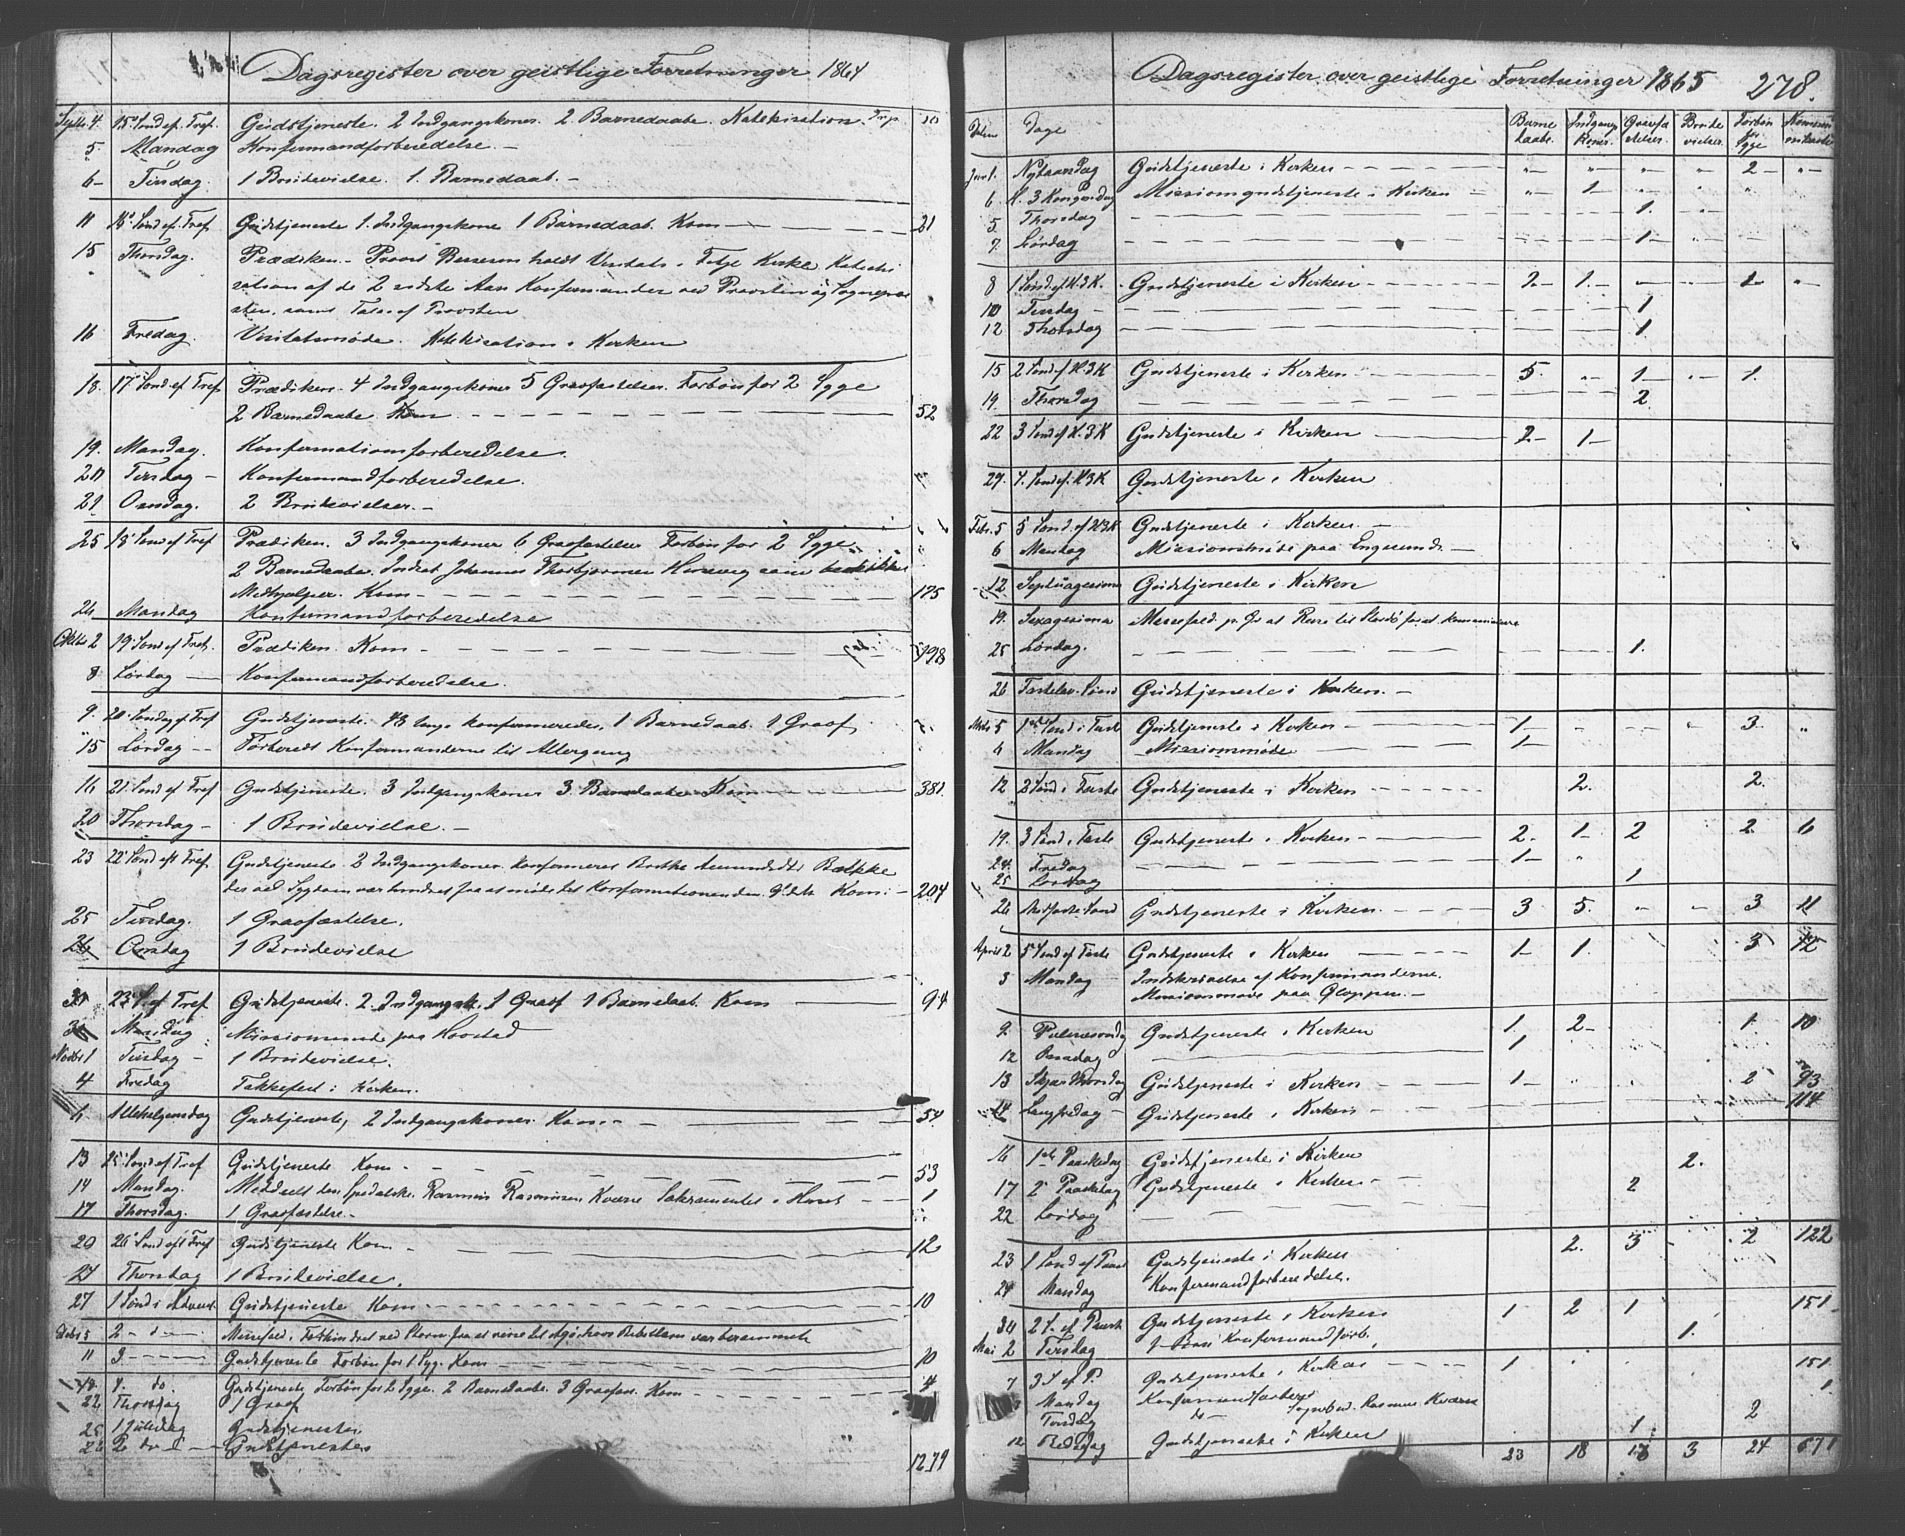 Dagsregister over geistlige Forretninger 1864
Septbr 4 15' Sond ef. Tref. Gudstjeneste. 2 Indgangskoner. 2 Barnedaabe. Katekisation.
5. Mandag Konfermandforberedelse. -
6 - Tirsdag. 1 Brudevielse. 1. Barnedaab. -
11 16' Sond ef. Tref. Gudstjeneste 1. Indgangskone 1 Barnedaab. Kom - - - 21
15 Thorsdag. Prædiken - Provst holdt Visitats i Kirke Katechi
sation af de 2 sidste Aars Konfermander ved Provsten og Sognepræ
sten, samt Tale af Provsten
16 Fredag. Visitatsmøde. Katekisation i Kirken
18. 17' Sond ef Tref. Prædiken. 4 Indgangskoner 5 Gravfæstelser. Forbøn for 2 Syge
2 Barnedaabe Kom - - - 52
19. Mandag. Konfermationsforberedelse.
20 Tirsdag - Konfermandforberedelse.
21 Onsdag. 2 Brudevielser. -
25 18' Sond ef Tref Prædiken. 3 Indgangskoner 6 Gravfæstelser Forbøn for 2 Syge
2 Barnedaabe. Indsat Johannes Thorbjørnsen som
Medhjelper. Kom - - - 175
26 Mandag Konfermandforberedelse
Oktbr 2 19' Sond ef Tref. Prædiken. Kom - - - 198
8 Lørdag - Konfermandforberedelse.
9. 20. Søndag ef Tref Gudstjeneste. 43 Unge konfermerede. 1 Barnedaab. 1 Gravf.
15 Lørdag - Forberedt Konfermanderne til Altergang
16 21. Sond ef Tref Gudstjeneste. 3 Indgangskoner 3. Barnedaabe Kom - - - 381.
20 Thorsdag - 1 Brudevielse. -
23 22' Sond eft Tref. Gudstjeneste. 2 Indgangskoner. Konfermeret
der ved Sygdom var hindret fra at møde til Konfermationen den 9' dts Kom: - 204
25 Tirsdag. 1 Gravfæstelse.
26 Onsdag 1 Brudevielse
30 23' S. ef Tref. Gudstjeneste. 2. Indgangsk. 1 Gravf 1 Barnedaab. Kom - 94
31 Mandag Missionsmøde paa Hovstad
Novbr 1 Tirsdag - 1 Brudevielse.
4 Fredag Takkefest i Kirken.
6. Allehelgensdag Gudstjeneste, 2 Indgangskoner Kom - - - 54
13 25' Sond ef Tref Gudstjeneste Kom - - - 53
14 Mandag. Meddeelt den Spedalske Rasmus Rasmusen Kværne Sakramentet i Huset - - 1
17 Thorsdag. 1 Gravfæstelse -
20 26' Sond eft Tref Gudstjeneste Kom. - - - 12
Thorsdag 1 Brudevielse.
27 1 Sond i Advent Gudstjeneste Kom - - - 10
Debr 5 2 - d - Messefald. Forhindret ved Storm fra at reise til
11 3 - - - Gudstjeneste Forbøn for 1 Syg. Kom - - - 10
18. 4. do. Gudstjeneste Forbøn for 2 Syge. 2 Barnedaabe. 3 Gravfæs. Kom - - - 4
22 Thorsdag 1 Gravf
25 1 Juledag Gudstjeneste
26 2 do d - Gudstjeneste
1279
Dagsregister over geistlige Forretninger 1865 278.
Datum Dage Barne daabe. Indgang Koner. Gravfæ stelser. Brude vielser. Forbøn for Syge Kommuni
Jan 1. Nytaarsdag Gudstjeneste i Kirken - - - " " " " 2 - "
6 H. 3 Kongersdag Missionsgudstjeneste i Kirken - " 1 - " "
5. Thorsdag - - - 1.
7. Lørdag - - - 1 -
8 1 Sond ef H. 3 K. Gudstjeneste i Kirken - - - 2 - 1. - 1 - "
10 Tirsdag - - - 1
12 Thorsdag - - - 1.
15 2 Sond ef H. 3 K Gudstjeneste i Kirken - - - 5. " 1 - " 1.
19. Thorsdag - - - 2.
22 3 Sond ef H. 3 K Gudstjeneste i Kirken - - - 2 - 1 -
29. 4. Sond ef. H 3 K Gudstjeneste i Kirken
Febr. 5 5 Sond. ef H 3 K Gudstjeneste i Kirken. -
6 Mandag Missionsmøde paa -
12 Septuagesima Gudstjeneste i Kirken
19. Sexagesima Messefald p. Gr. at Reise til for at kommunicere
25 Lørdag. - - - 1.
26 Fastelav. Sond Gudstjeneste i Kirken. -
Marts 5 1ste Sond i Faste Gudstjeneste i Kirken - - - 1 - " " " 3. "
6 Mandag Missionsmøde 1 -
12 2 Sond i Faste Gudstjeneste i Kirken - - - 2. 2.
19. 3 Sond i Faste Gudstjeneste i Kirken - - - 2 - 1 - 2 2. 6
24. Fredag - - - 1 - "
25 Lørdag 1
26 Midfaste Sond Gudstjeneste i Kirken. - - - 3 5. " " 3 11
April 2 5 Sond ef Faste Gudstjeneste i Kirken - - - 1 - 1. 3 12
3 Mandag Indskrivelse af Konfermanderne.
Missionsmøde paa Gloppen. -
9. Palmesondag Gudstjeneste i Kirken 1. 2 - 1. 10
12 Onsdag - - - 1
13 Skjærthorsdag Gudstjeneste i Kirken - - - 1 - 2 93
14 Langfredag - Gudstjeneste i Kirken - - - 114
16 1ste Paaskedag Gudstjeneste i Kirken 2.
17 2' Paaskedag Gudstjeneste i Kirken - - 2
22 Lørdag - - -
23 1 Sond ef Paask Gudstjeneste i Kirken 2. 3 2 122
24 Mandag Konfermandforberedelse.
30 2 S. ef Paask Gudstjeneste i Kirken 1 2 1 151
Mai 2 Tirsdag Konfermandforb. 1.
7 3 S ef P. Gudstjeneste i Kirken - - - 1 151.
Mandag Konfermandforbered Sognebud. Rasmus Kværne 1
Torsdag do - 2
12 Bededag Gudstjeneste i Kirken 1
23 18 3 24 671